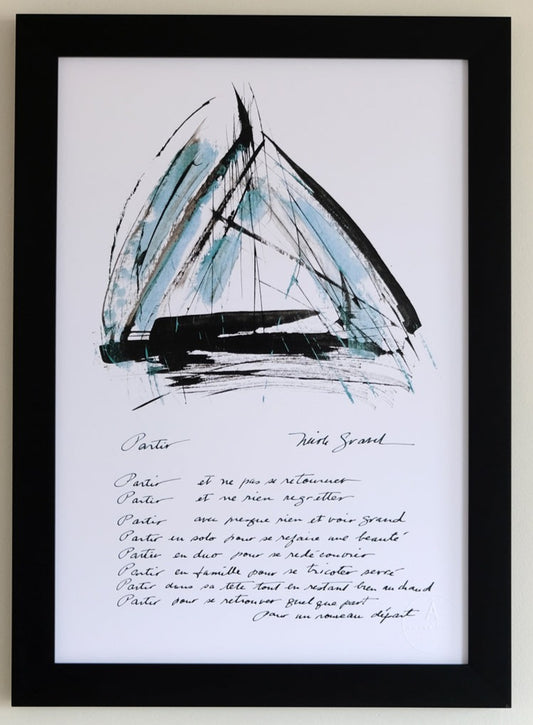 Partir Nicole Gravel
Partir et ne pas se retourner
Partir et ne rien regretter
Partir avec presque rien et voir grand
Partir en solo pour se refaire une beauté
Partir en duo pour se redécouvrir
Partir en famille pour se tricoter serré
Partir dans sa tête tout en restant bien au chaud
Partir pour se retrouver quelque part
pour un nouveau départ